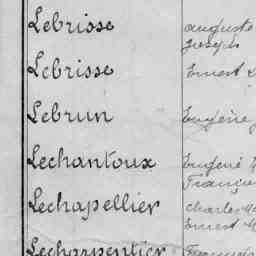 Lebrisse auguste
Joseph
Lebrisse Ernest
Lebrun Eugène
Lechantoux Eugené
Lechapellier Charles
Ernest
Lecharpentier